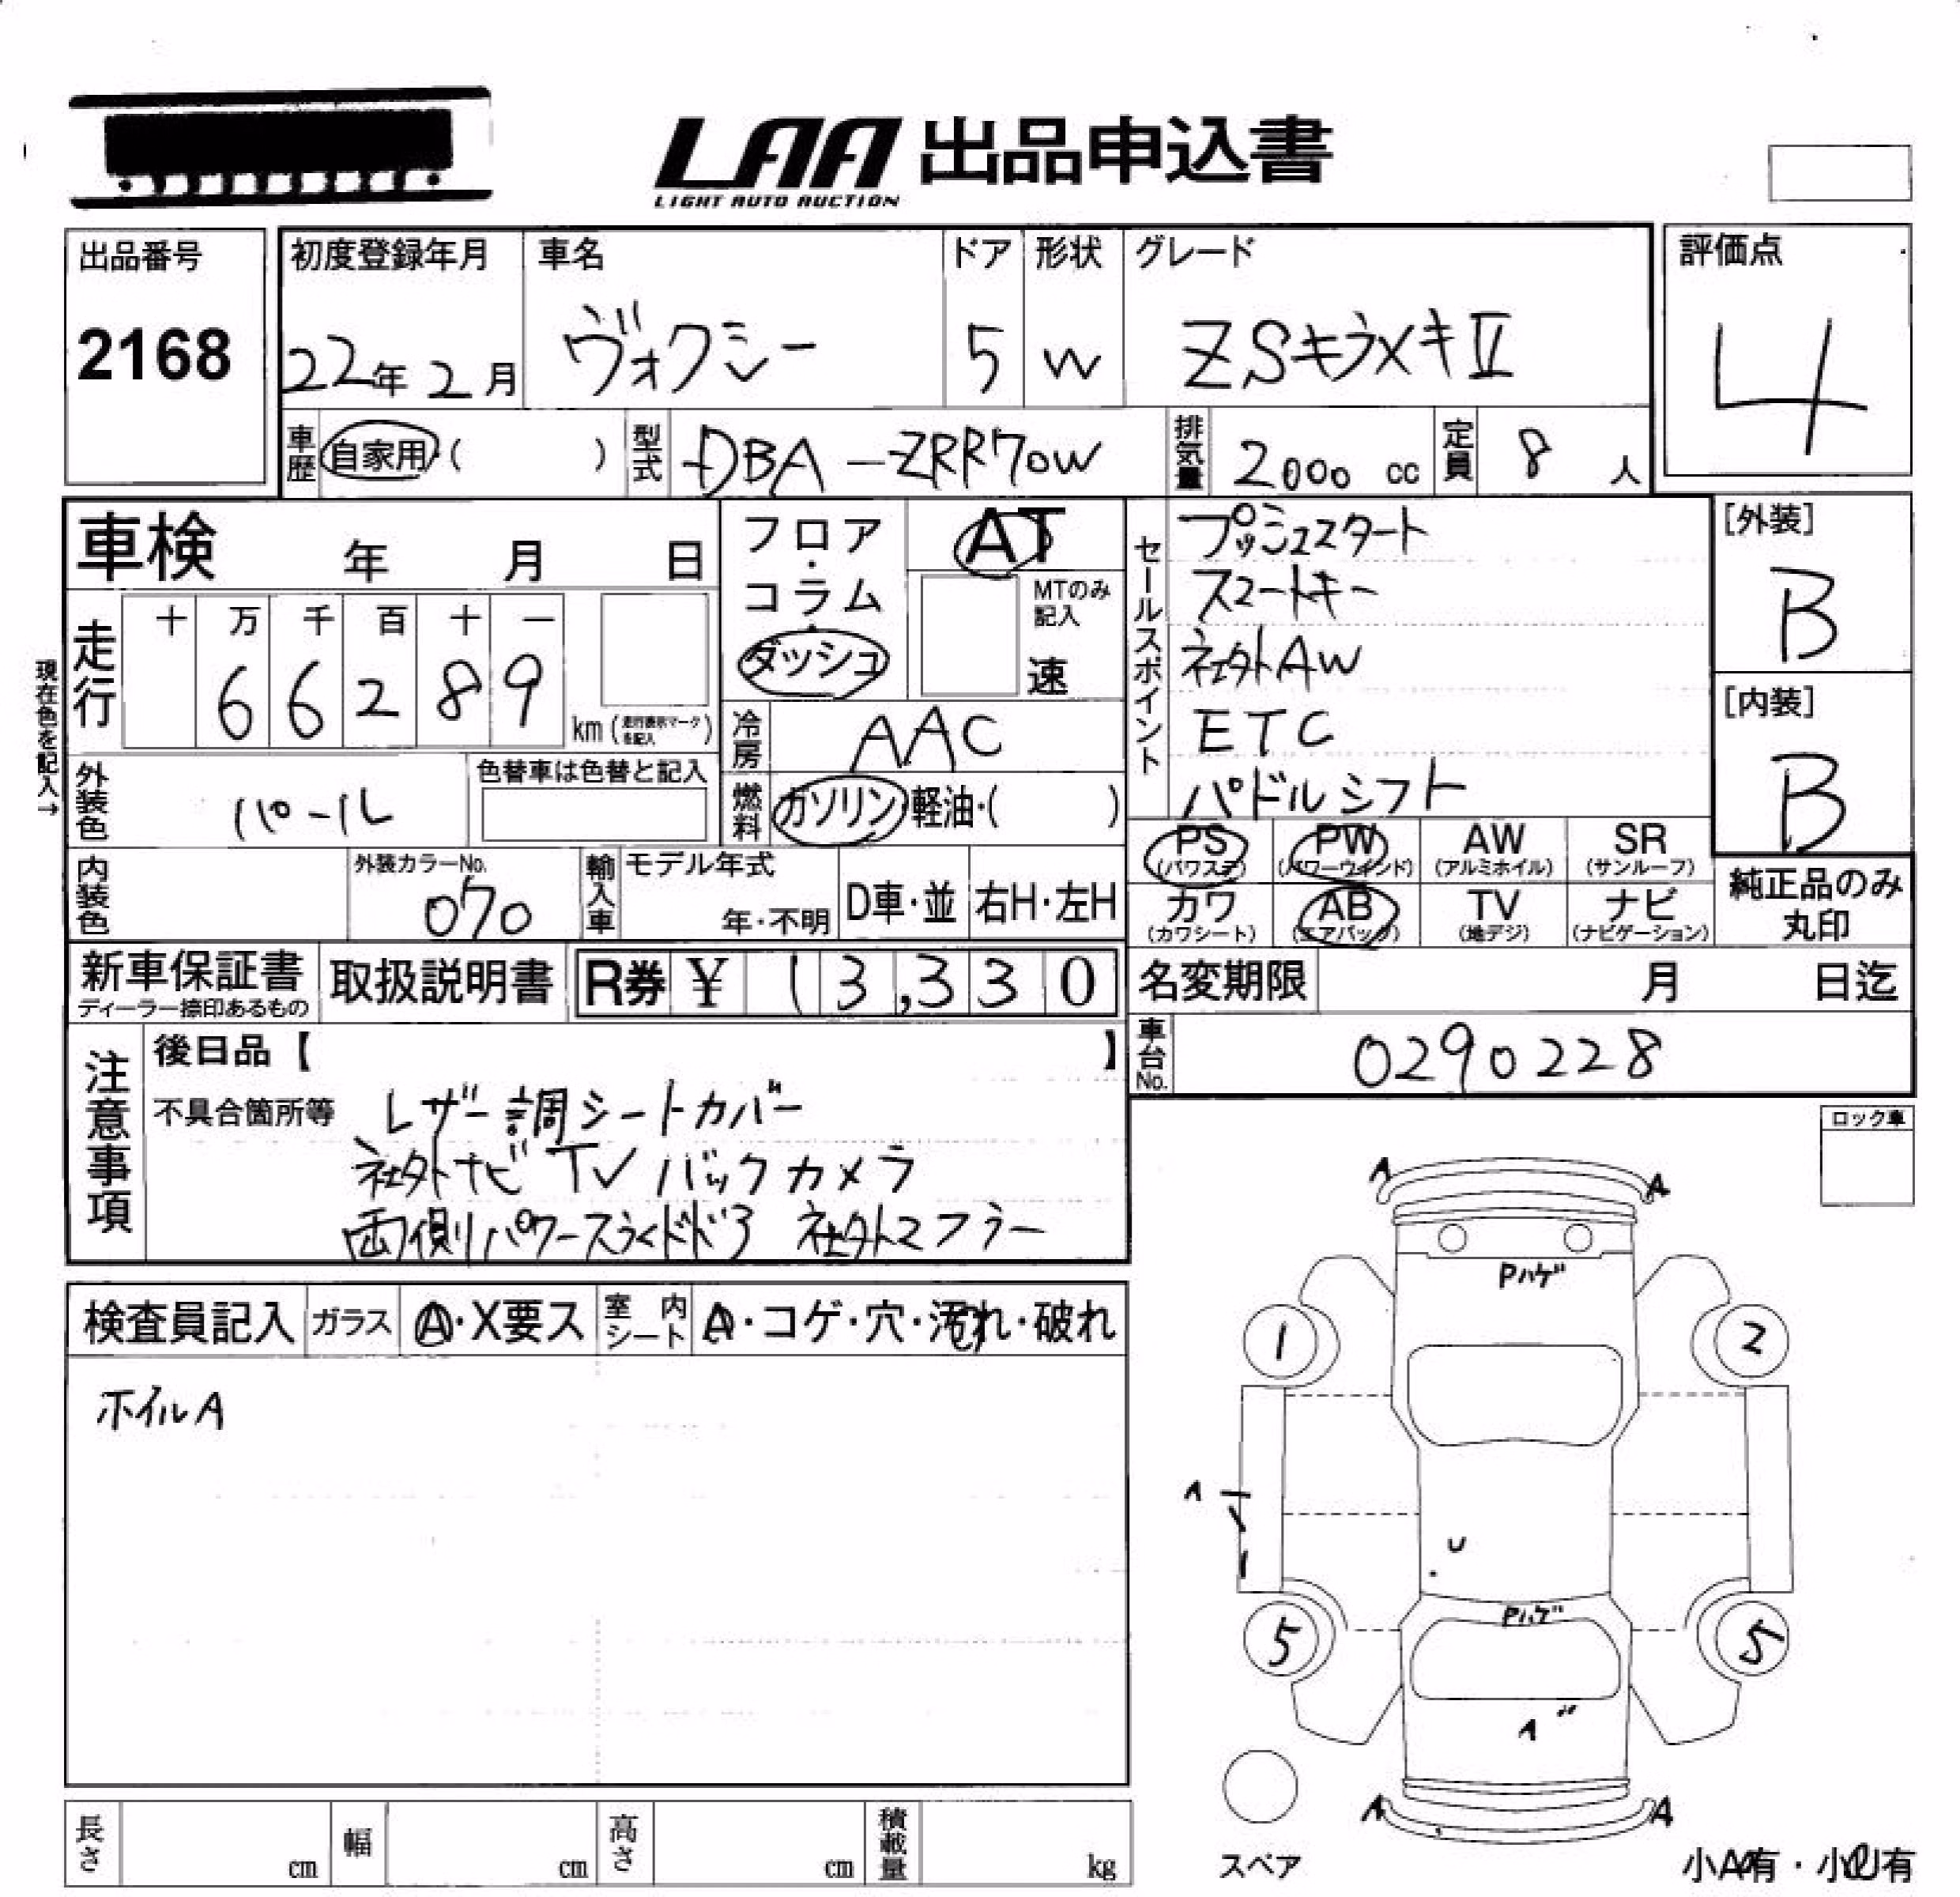 LAA 出品申込書
LIGHT AUTO AUCTION
出品番号 初度登録年月 車名 ドア 形状 グレード 評価点
2168 22年 2月 ヴォクシー 5 W ZSキラメキⅡ 4
車歴 自家用・( ) 型式 DBA-ZRR70W 排気量 2000 cc 定員 8 人
車検 年 月 日 フロア・ AT セールスポイント プッシュスタート [外装]
コラム・ MTのみ記入 スマートキー B
走行 十 万 千 百 十 一 ダッシュ 速 社外AW
6 6 2 8 9 km(走行表示マークを記入) [内装]
現在色を記入→ 冷房 AAC ETC B
外装色 パール 色替車は色替と記入 燃料 ガソリン・軽油・( ) パドルシフト
PS(パワステ) PW(パワーウインド) AW(アルミホイル) SR(サンルーフ)
内装色 外装カラーNo. 070 輸入車 モデル年式 年・不明 D車・並 右H・左H カワ(カワシート) AB(エアバッグ) TV(地デジ) ナビ(ナビゲーション) 純正品のみ丸印
新車保証書 取扱説明書 R券 ¥ 13,330 名変期限 月 日迄
ディーラー捺印あるもの
注意事項 後日品【 】 車台No. 0290228
不具合箇所等 レザー調シートカバー
社外ナビ TV バックカメラ
両側パワースライドドア 社外マフラー
ロック車
A A
Pハゲ
検査員記入 ガラス A・X要ス 室内シート A・コゲ・穴・汚れ・破れ
1 2
ホイルA
A
U
Pハゲ
5 5
A
A A
スペア
長さ cm 幅 cm 高さ cm 積載量 kg 小A有・小U有